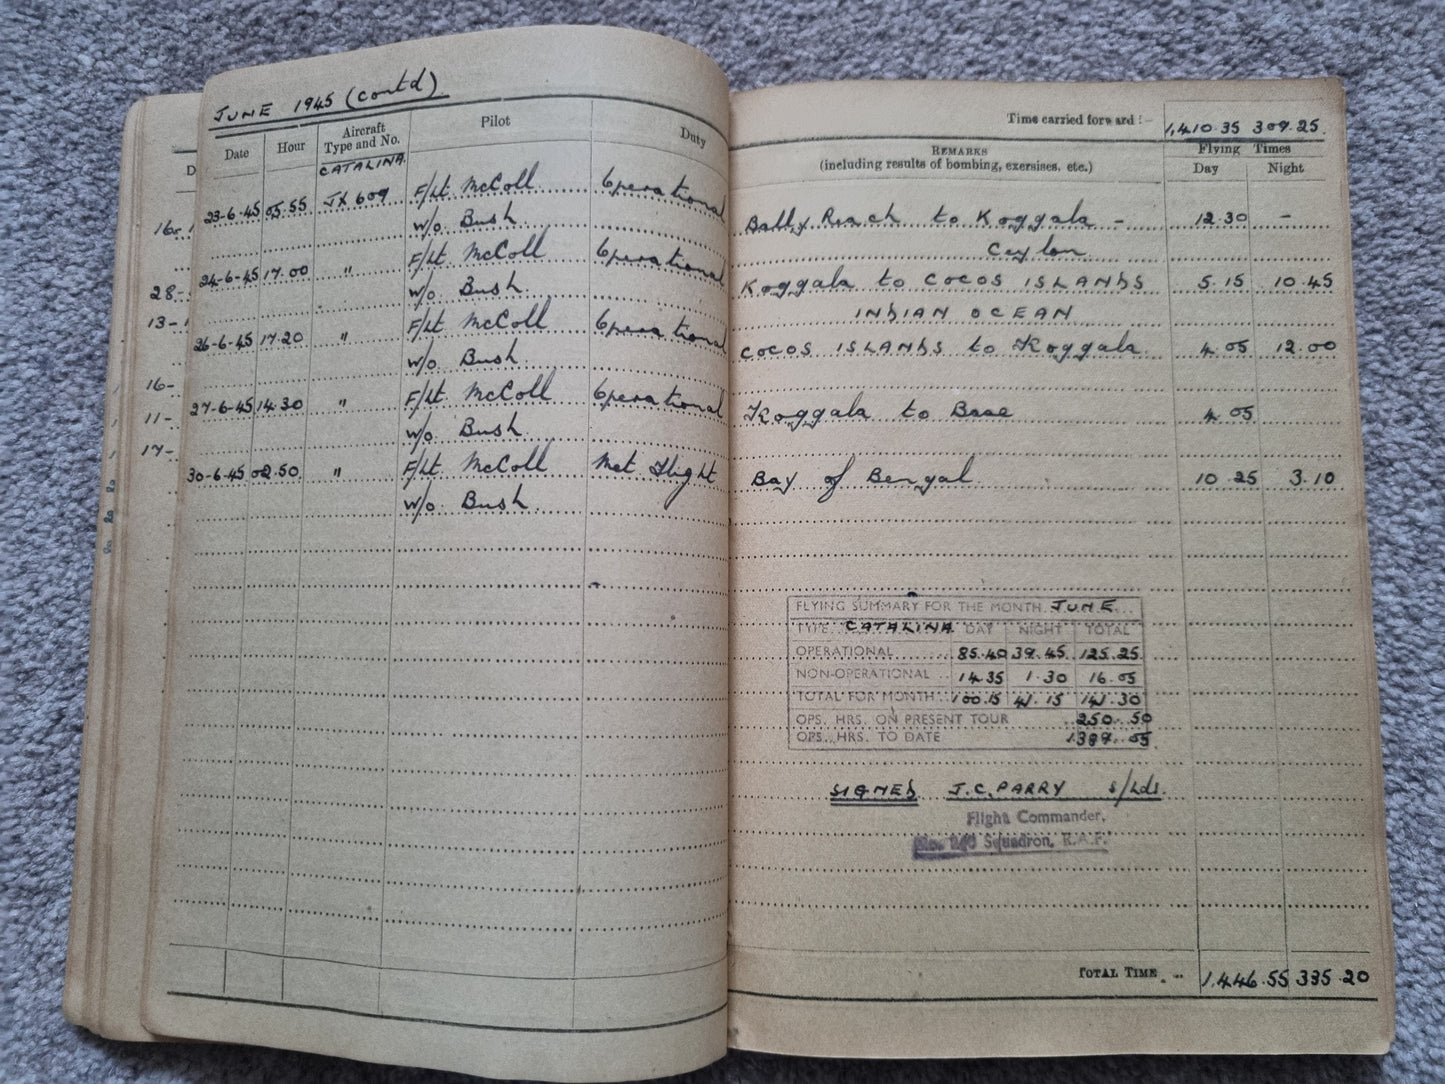 JUNE 1945 (contd)
Date Hour Aircraft Type and No. Pilot Duty
CATALINA.
23-6-45 05.55 JX 609 F/Lt McColl Operational
W/O Bush
24-6-45 17.00 " F/Lt McColl Operational
W/O Bush
26-6-45 17.20 " F/Lt McColl Operational
W/O Bush
27-6-45 14.30 " F/Lt McColl Operational
W/O Bush
30-6-45 02.50 " F/Lt McColl Met Flight
W/O Bush
Time carried forward :- 1,410.35 309.25
REMARKS
(including results of bombing, exersises, etc.)
Flying Times
Day Night
Bally Reach to Koggala - 12.30 -
Ceylon
Koggala to COCOS ISLANDS 5.15 10.45
INDIAN OCEAN
COCOS ISLANDS to Koggala 4.05 12.00
Koggala to Base 4.05
Bay of Bengal 10 25 3.10
FLYING SUMMARY FOR THE MONTH JUNE
TYPE CATALINA DAY NIGHT TOTAL
OPERATIONAL 85.40 39.45 125.25
NON-OPERATIONAL 14.35 1.30 16.05
TOTAL FOR MONTH 100.15 41.15 141.30
OPS. HRS. ON PRESENT TOUR 250.50
OPS. HRS. TO DATE 1387.05
SIGNED J.C. PARRY S/Ldr.
Flight Commander,
No. 240 Squadron, R.A.F.
TOTAL TIME ... 1,446.55 335.20
16
28-
13-
16-
11-
17-